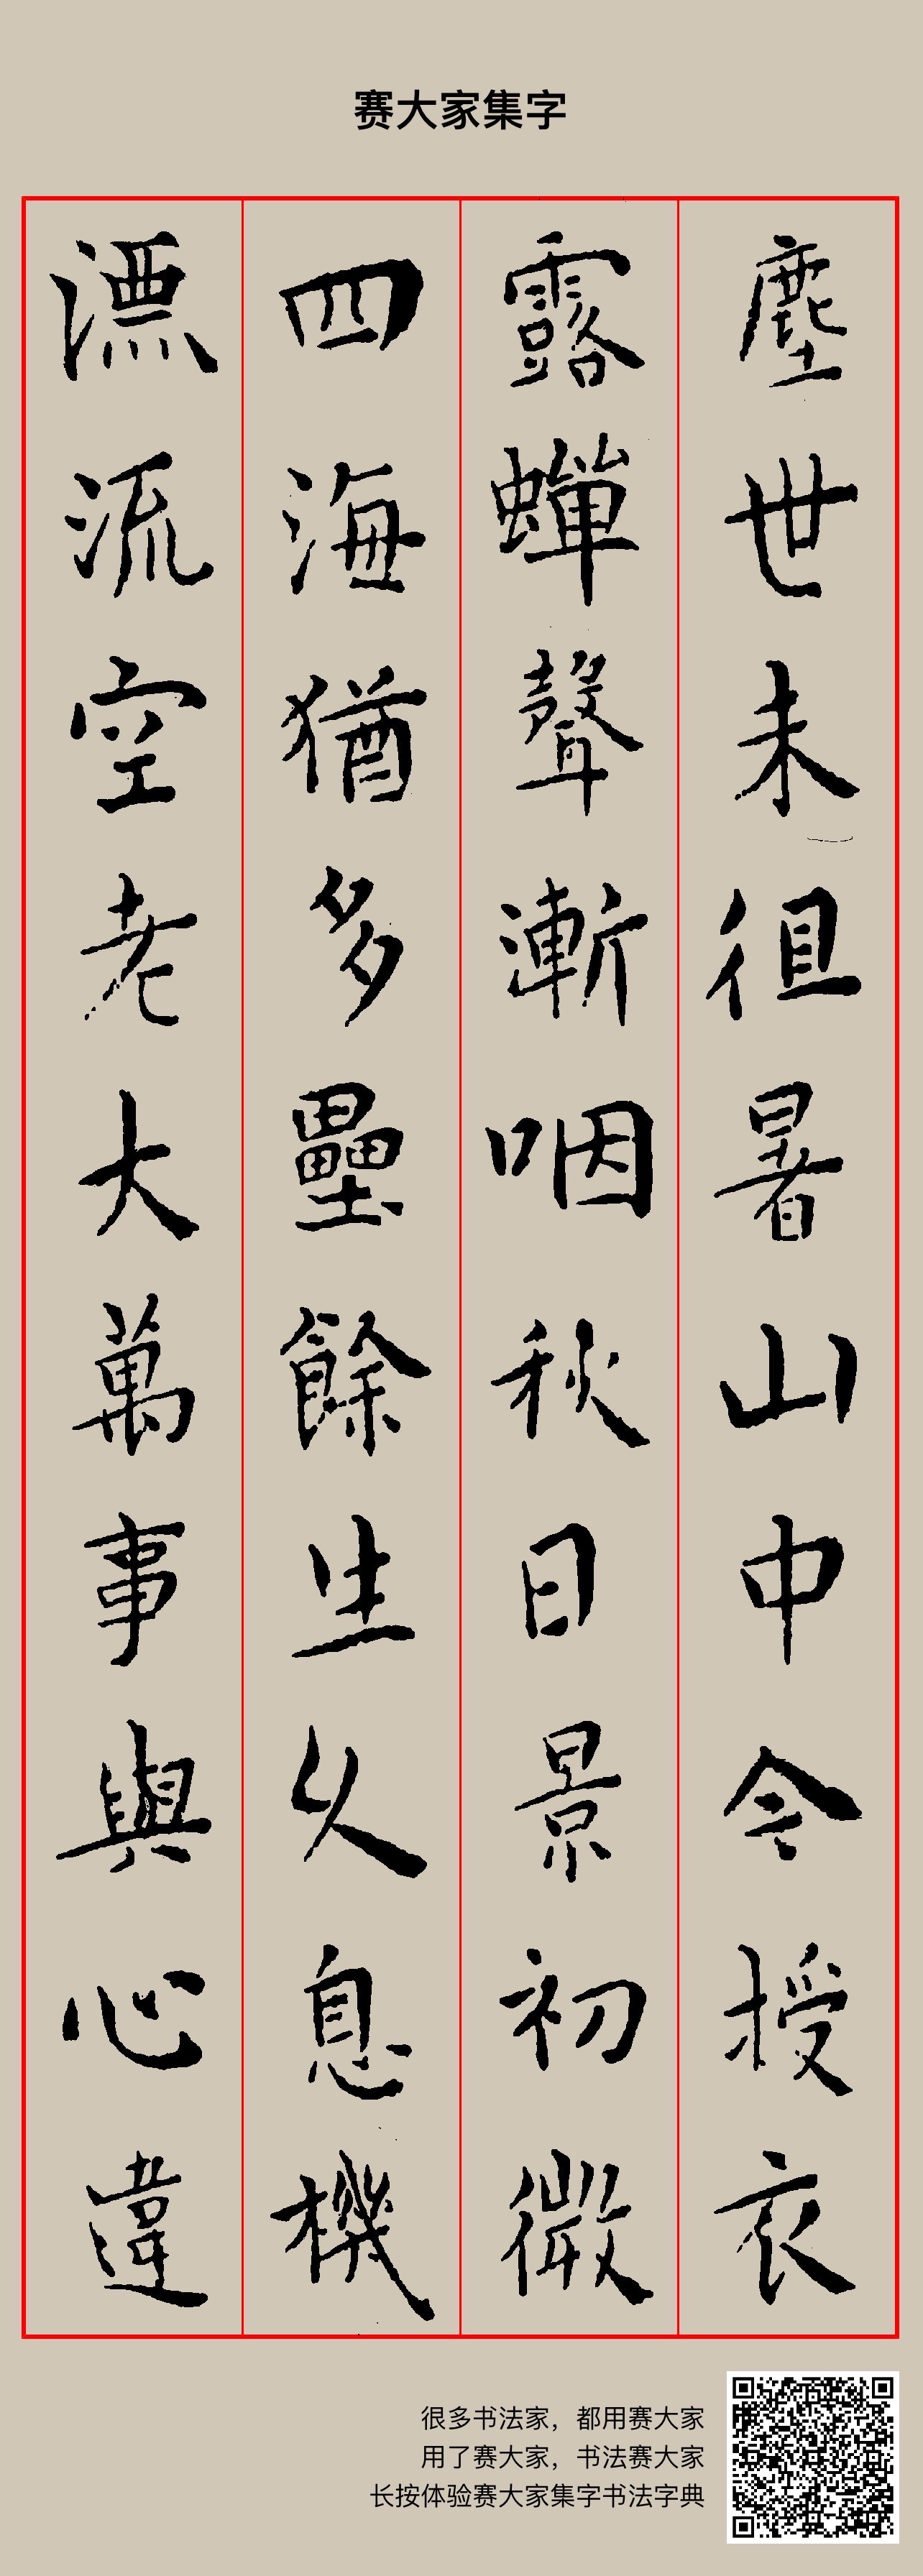 赛大家集字
塵世未徂暑山中令授衣
露蟬聲漸咽秋日景初微
四海猶多壘餘生久息機
漂流空老大萬事與心違
很多书法家，都用赛大家
用了赛大家，书法赛大家
长按体验赛大家集字书法字典